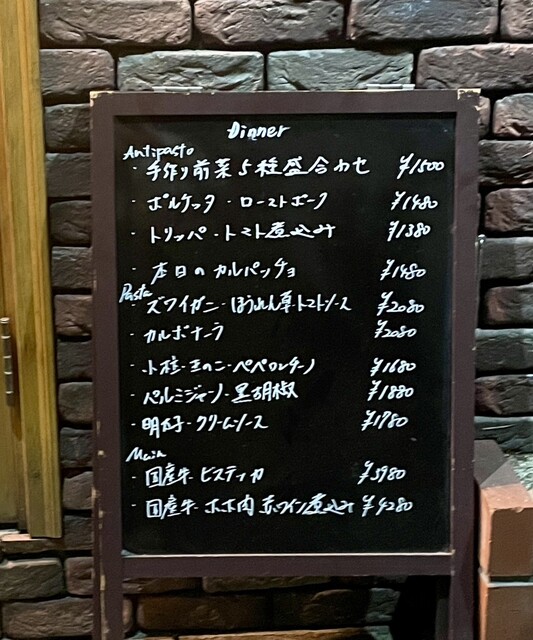 Dinner
Antipasto
・手作り前菜5種盛合わせ ¥1500
・ポルケッタ・ローストポーク ¥1480
・トリッパ・トマト煮込み ¥1380
・本日のカルパッチョ ¥1480
Pasta
・ズワイガニ・ほうれん草トマトソース ¥2080
・カルボナーラ ¥2080
・小柱・きのこ・ペペロンチーノ ¥1680
・パルミジャーノ・黒胡椒 ¥1880
・明太子・クリームソース ¥1780
Main
・国産牛・ビステッカ ¥5980
・国産牛・ホホ肉 赤ワイン煮込み ¥4280